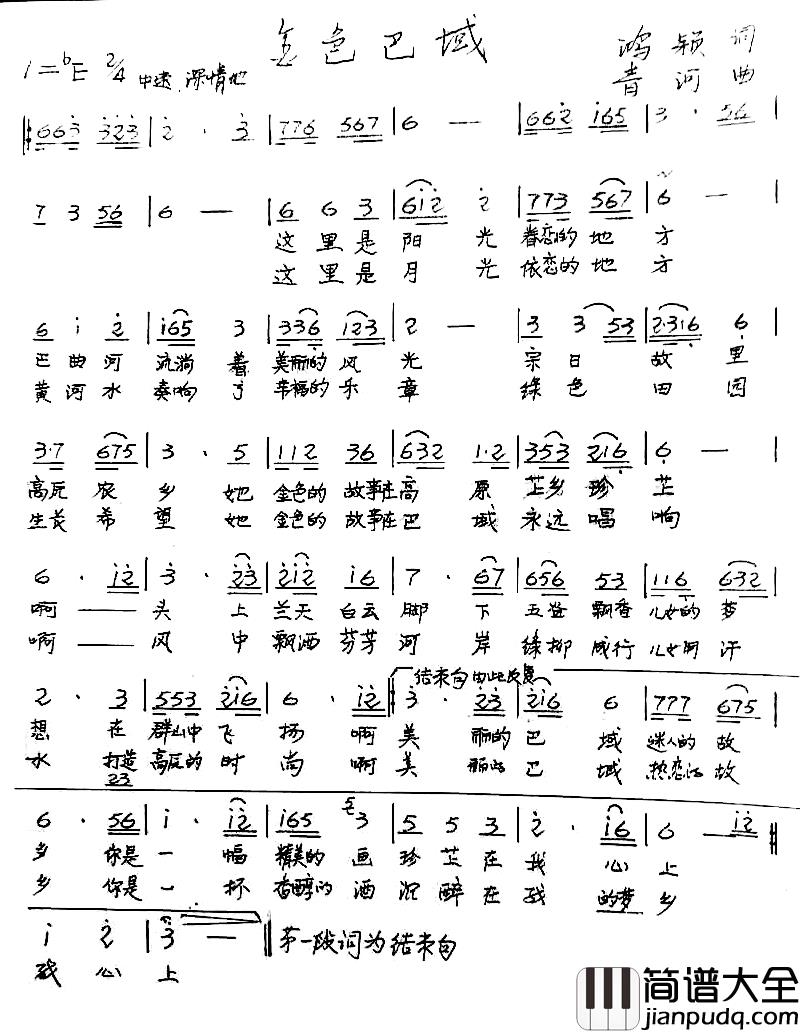 金色巴域
鸿颖 词
1=♭E 2/4 中速 深情地
青河 曲
这里是阳光眷恋的地方
这里是月光依恋的地方
巴曲河流淌着美丽的风光 宗日故里
黄河水奏响了幸福的乐章 绿色田园
高瓦农乡她金色的故事在高原芷乡珍芷
生长希望她金色的故事在巴域永远唱响
啊——头上兰天白云脚下五谷飘香儿女的梦
啊——风中飘洒芬芳河岸绿柳成行儿女的汗
结束句由此反复
想在群山中飞扬啊美丽的巴域迷人的故
水打造高瓦的时尚啊美丽的巴域热恋的故
乡你是一幅精美的画珍芷在我心上
乡你是一杯香醇的酒沉醉在我的梦乡
我心上
第一段词为结束句
简谱大全
jianpudq.com